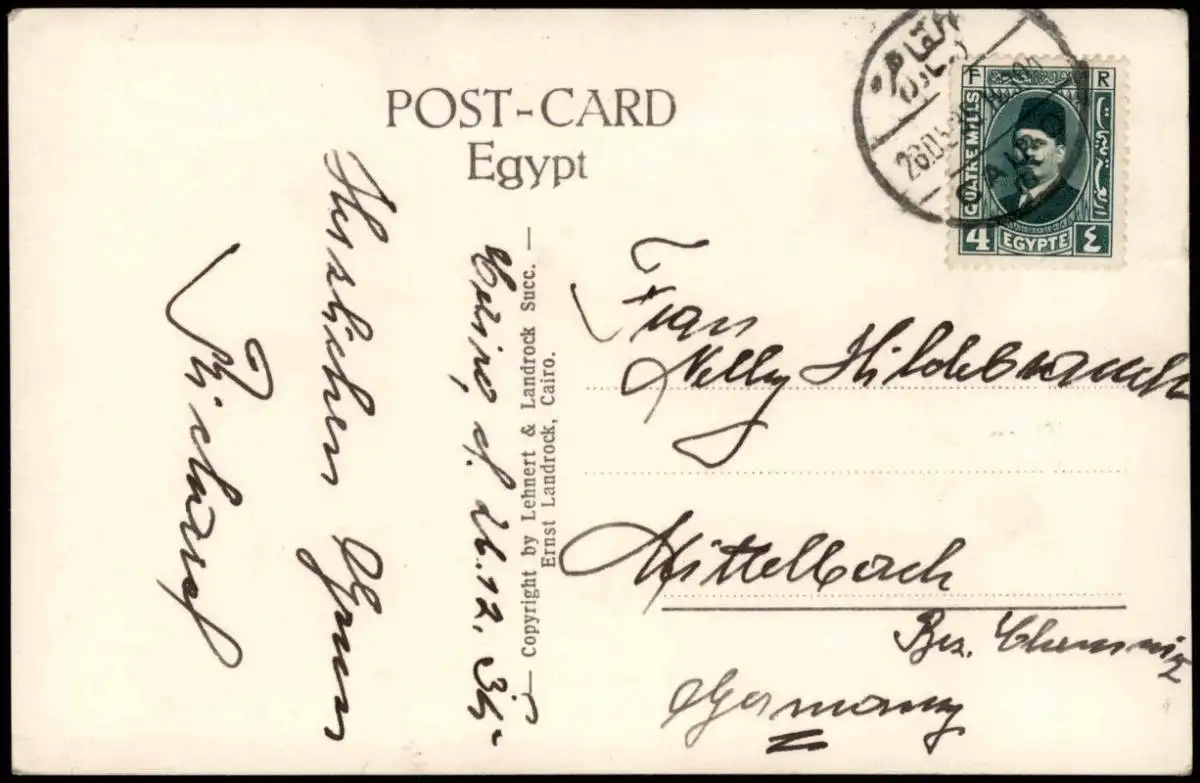 POST-CARD
Egypt
Cairo, d. 26.12.34
Herzlichen Gruss
Richard
— Copyright by Lehnert & Landrock Succ. —
Ernst Landrock, Cairo.
القاهرة
CAIRO
F R
QUATRE MILLS
4 EGYPTE ٤
Frau
Nelly Hildebrandt
Mittelbach
Bez. Chemnitz
Germany